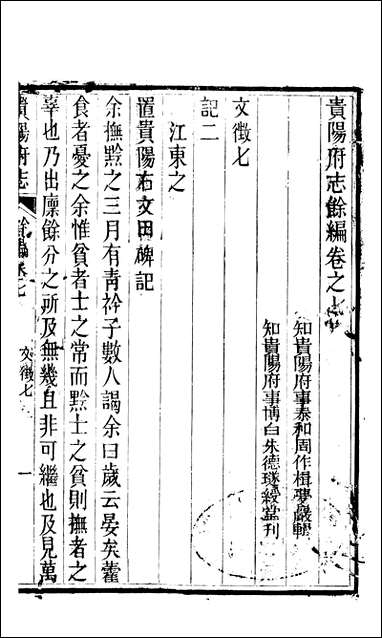 貴陽府志餘編卷之七
知貴陽府事泰和周作楫夢巖輯
知貴陽府事博白朱德璲綬堂刊
文徵七
記二
江東之
置貴陽右文田碑記
余撫黔之三月有靑衿子數人謁余曰歲云晏矣藿
食者憂之余惟貧者士之常而黔士之貧則撫者之
辜也乃出廪餘分之所及無幾且非可繼也及見萬
貴陽府志
餘編卷七
文徵七
一